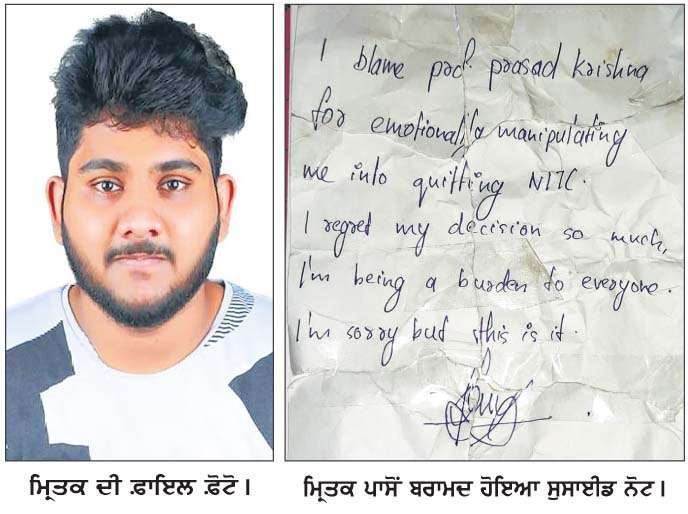 I blame prof. prasad Krishna
for emotionally manipulating
me into quitting NITC.
I regret my decision so much,
I'm being a burden to everyone.
I'm sorry but this is it.
ਮ੍ਰਿਤਕ ਦੀ ਫ਼ਾਇਲ ਫ਼ੋਟੋ।
ਮ੍ਰਿਤਕ ਪਾਸੋਂ ਬਰਾਮਦ ਹੋਇਆ ਸੁਸਾਈਡ ਨੋਟ।